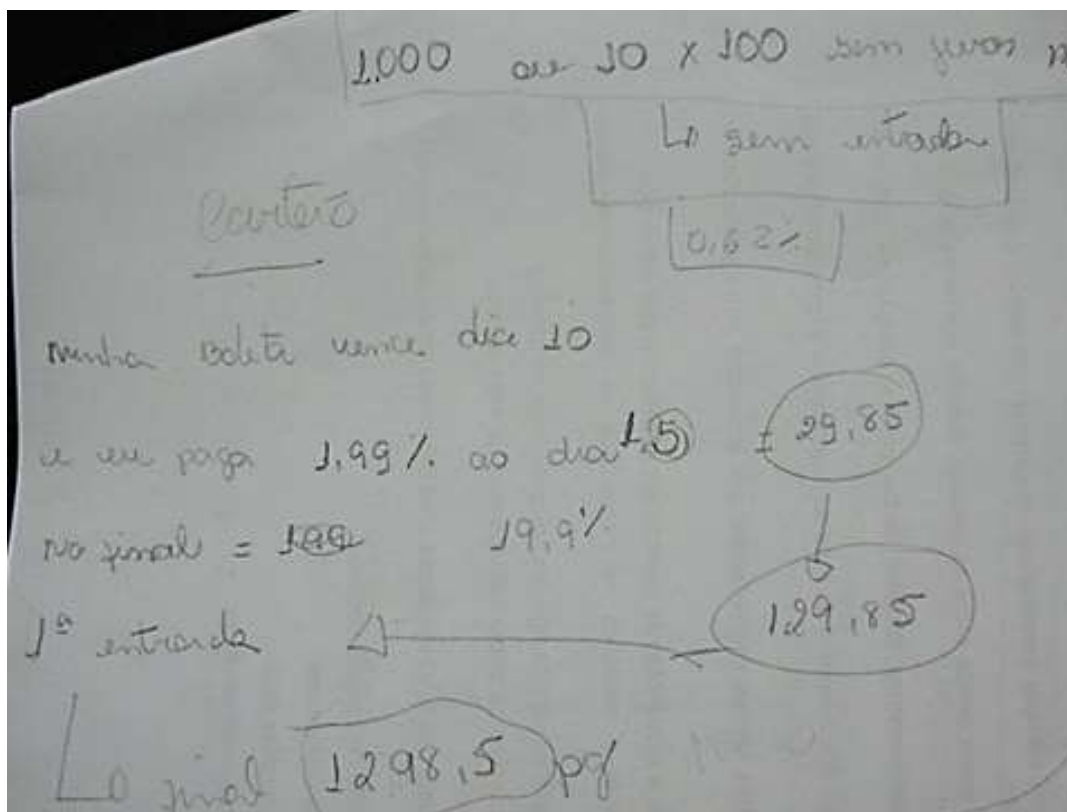 1.000 ou 10 x 100 sem juros
↳ sem entrada
Cartão
0,62%
minha boleto vence dia 10
e eu pago 1,99% ao dia 1,5 = 29,85
no final = 199 19,9%
129,85
1ª entrada
↳ final 1298,5 pg